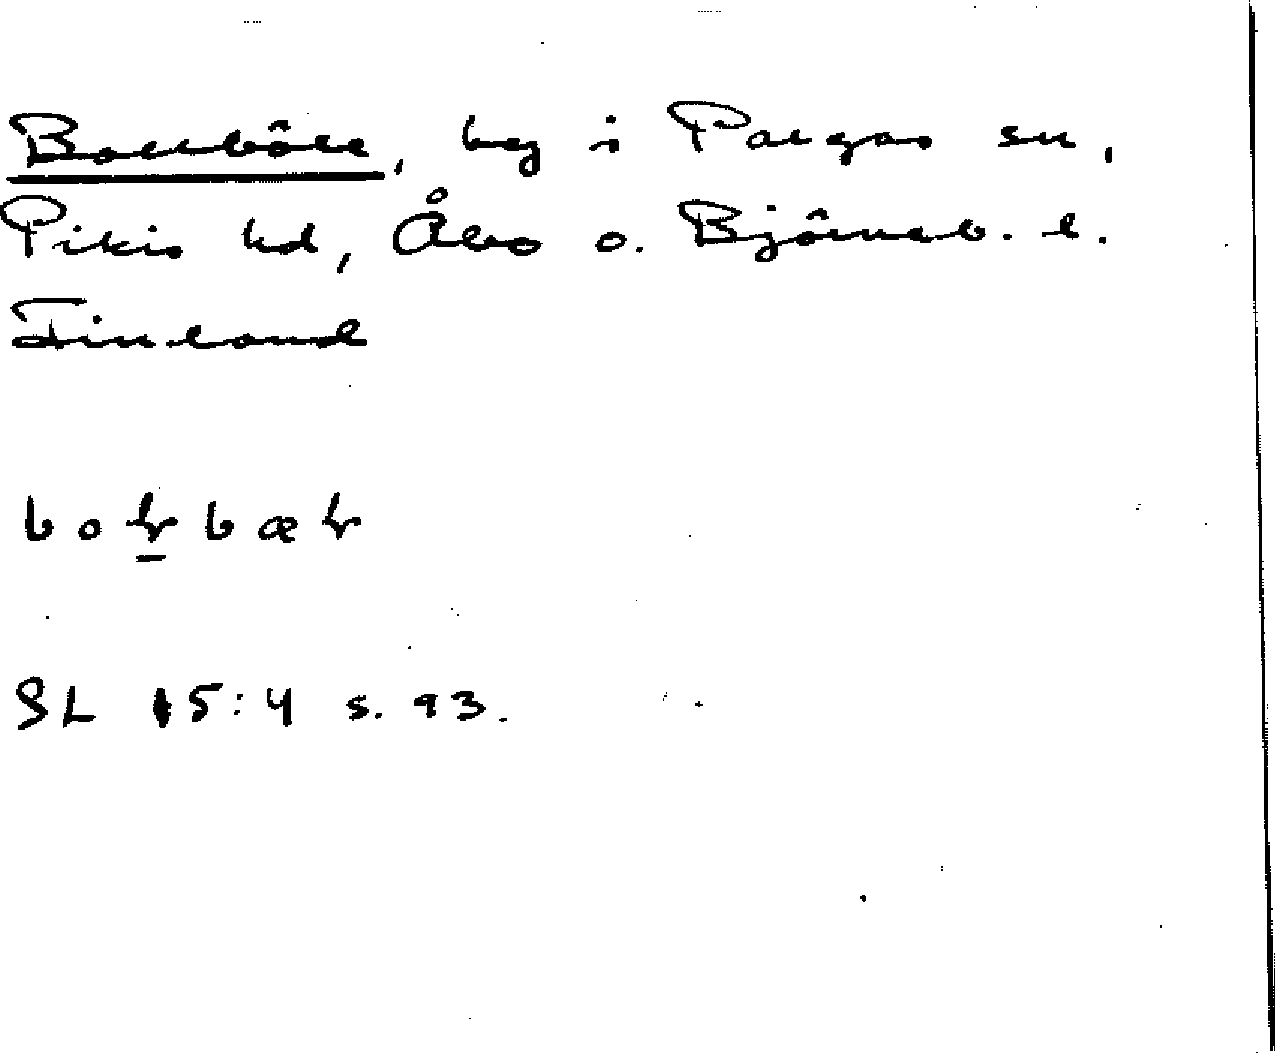 Bollböle, by i Pargas sn,
Pikis hd, Åbo o. Björneb. l.
Finland
SL 15:4 s. 93.